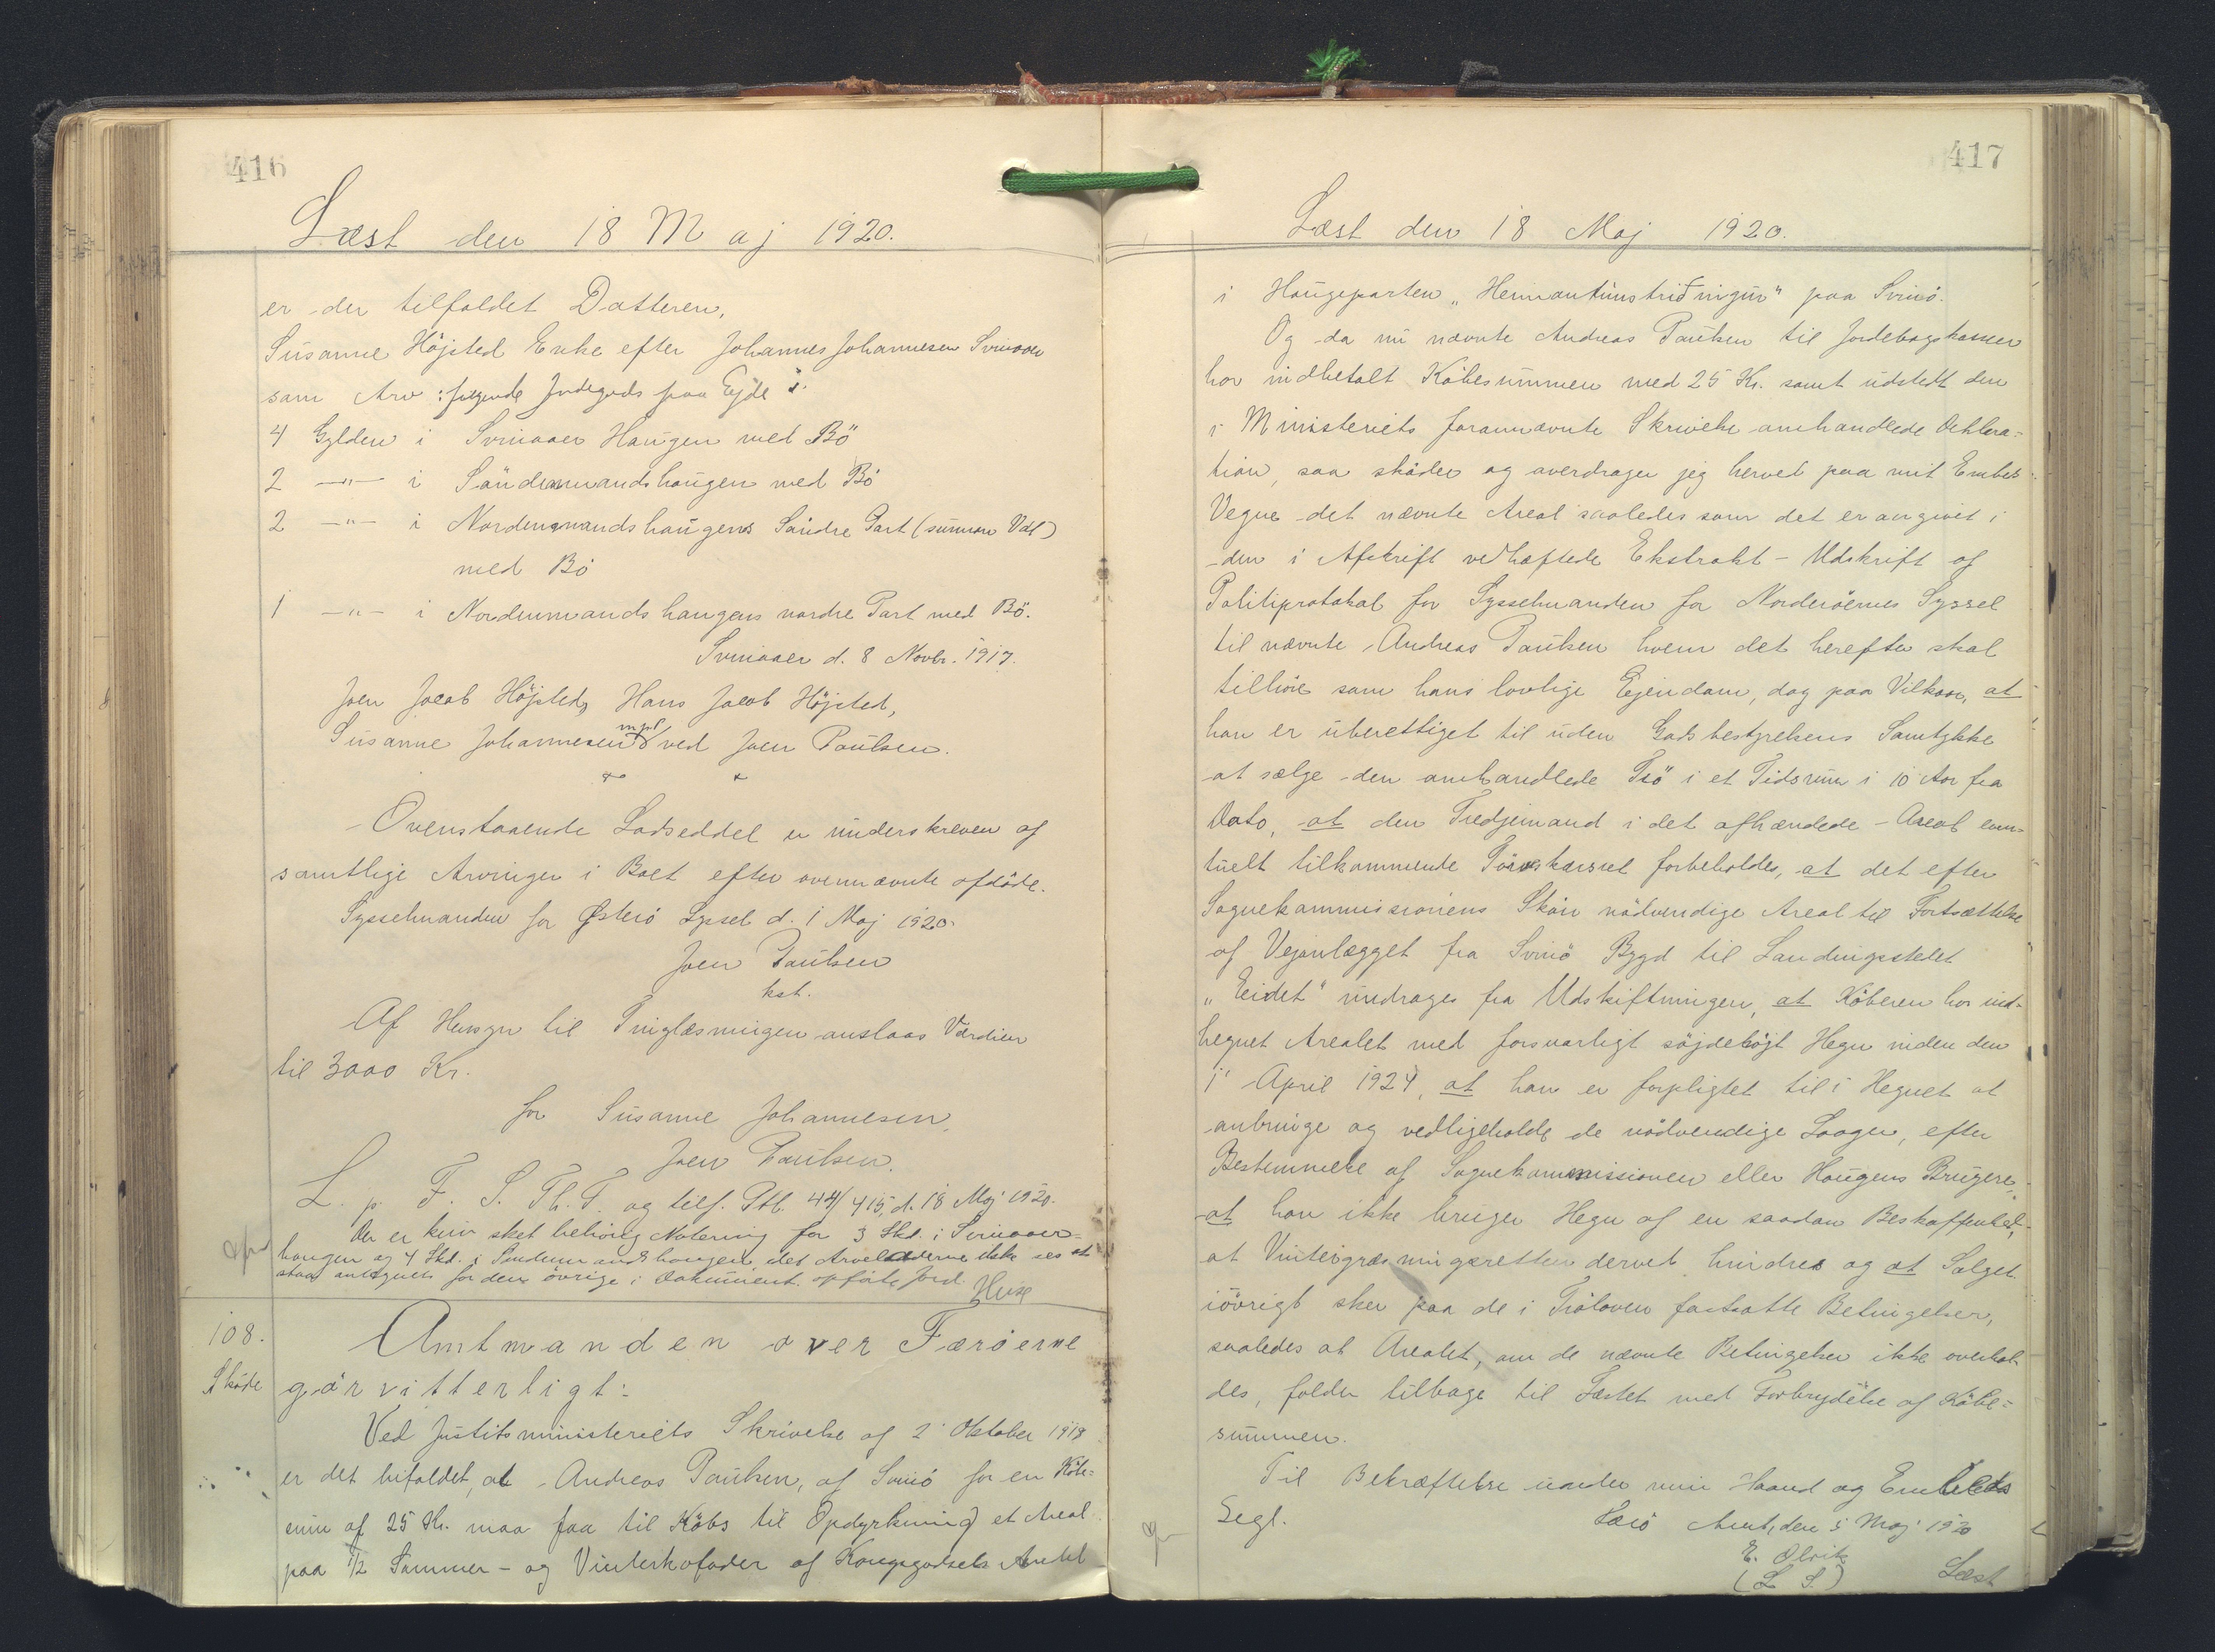 416
Læst den 18 Maj 1920.
er der tilfaldet Datteren,
Susanne Höjsted Enke efter Johannes Johannesen Svinaaer
som Arv: følgende Jordegods paa Ejde s.
4 Gylden i Svinaaer Haugen med Bö
2 —"— i Söndenmandshaugen med Bö
2 —"— i Nordenmandshaugens Söndre Part (sunnan Val)
med Bö
1 —"— i Nordenmandshaugens nordre Part med Bö.
Svinaaer d. 8 Novbr. 1917.
Joen Jacob Höjsted, Hans Jacob Höjsted,
Susanne Johannesen mpl ved Joen Poulsen.
Ovenstaaende Lodseddel er underskreven af
samtlige Arvinger i Boet efter ovennævnte afdöde.
Sysselmanden for Østerö Syssel d. 1 Maj 1920.
Joen Poulsen
kst.
Af Hensyn til Tinglæsningen anslaas Værdien
til 3000 Kr.
for Susanne Johannesen,
Joen Poulsen.
L. p. F. S. Th. T. og tilf. Ptb. 44/415, d. 18 Maj 1920.
Der er kun sket behörig Notering for 3 Skd. i Svinaaer-
haugen og 4 Skd. i Söndenmandshaugen, det Arveladerne ikke ses at
staa antegnet for den övrige i Dokument opförte Jord.
108.
Sköde
Amtmanden over Færöerne
gör vitterligt:
Ved Justitsministeriets Skrivelse af 2' Oktober 1918
er det bifaldet, at Andreas Poulsen, af Svinö for en Köbe-
sum af 25 Kr. maa faa til Köbs til Opdyrkning et Areal
paa 1/2 Sommer- og Vinterkofoder af Kongsgodsets Andel
417
Læst den 18 Maj 1920.
i Haugeparten "Heimantúnstriðningur" paa Svinö.
Og da nu nævnte Andreas Poulsen til Jordebogskassen
har indbetalt Köbesummen med 25 Kr. samt udstedt den
i Ministeriets forannævnte Skrivelse omhandlede Deklera-
tion, saa sköder og overdrager jeg herved paa mit Embeds
Vegne det nævnte Areal saaledes som det er angivet i
den i Afskrift vedhæftede Ekstrakt-Udskrift af
Politiprotokol for Sysselmanden for Norderöernes Syssel
til nævnte Andreas Poulsen hvem det herefter skal
tilhöre som hans lovlige Ejendom, dog paa Vilkaar, at
han er uberettiget til uden Godsbestyrelsens Samtykke
at sælge den omhandlede Trö i et Tidsrum i 10 Aar fra
Dato, at den Tredjemand i det afhændede Areal even-
tuelt tilkommende Törveskærsret forbeholdes, at det efter
Sognekommissionens Skön nödvendige Areal til Fortsættelse
af Vejanlægget fra Svinö Bygd til Landingsstedet
"Eidet" undrages fra Udskiftningen, at Köberen har ind-
hegnet Arealet med forsvarligt söjdehöjt Hegn inden den
1' April 1924, at han er forpligtet til i Hegnet at
anbringe og vedligeholde de nödvendige Laager, efter
Bestemmelse af Sognekommissionen eller Haugens Brugere,
at han ikke bruger Hegn af en saadan Beskaffenhed,
at Vintergræsningsretten derved hindres og at Salget
iövrigt sker paa de i Tröloven fastsatte Betingelser,
saaledes at Arealet, om de nævnte Betingelser ikke overhol-
des, falder tilbage til Fæstet med Forbrydelse af Köbe-
summen.
Til Bekræftelse under min Haand og Embeds
Segl.
Færö Amt, den 5 Maj 1920
(L. S.)
Læst